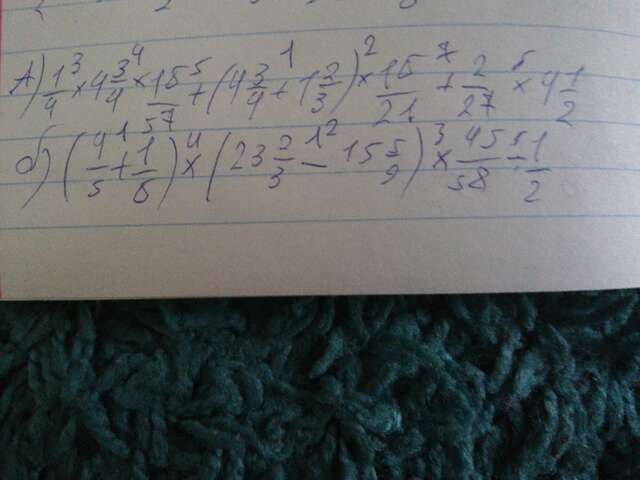 А) 1/4 ×³ 4 3/4 ×⁴ 15/57 +⁵ (4 3/4 +¹ 1 2/3) ײ 15/21 +⁷ 2/27 × 4 1/2
б) (4/5 +¹ 1/6) ×⁴ (23 2/3 −² 15 5/9) ׳ 45/58 1/2